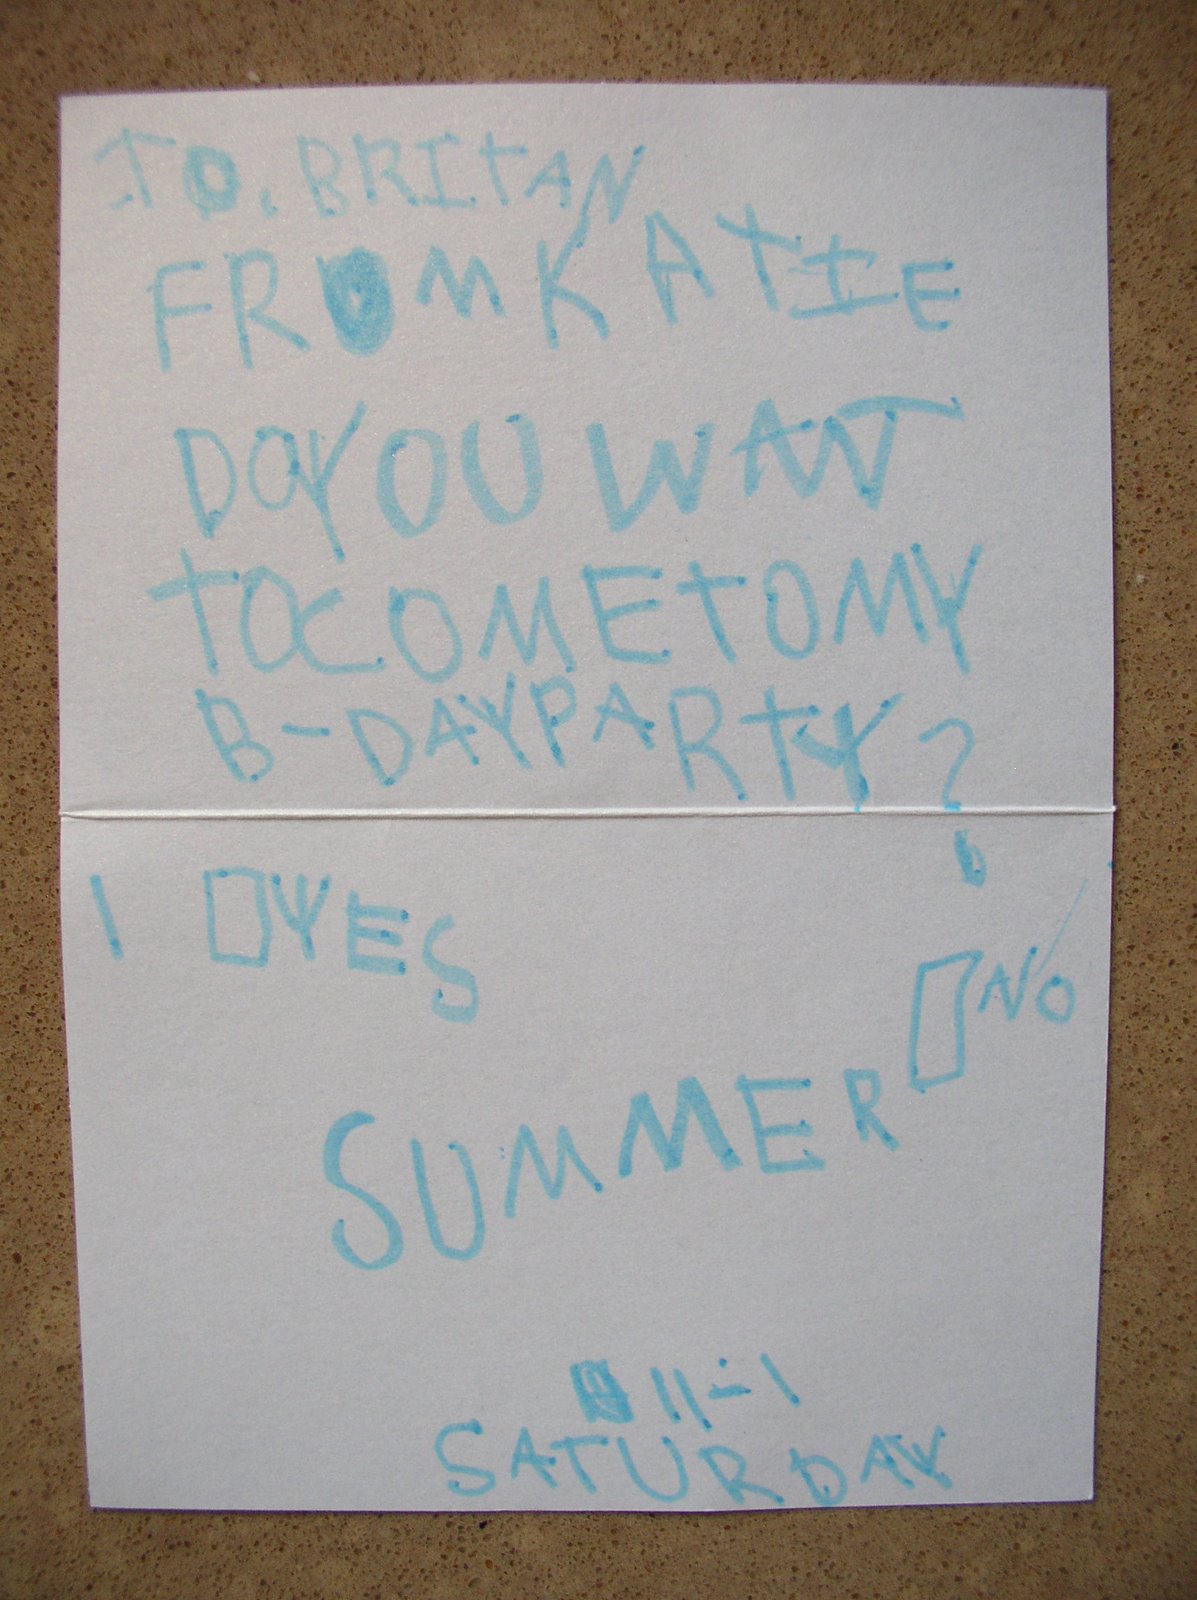 TO. BRITAN
FROM KATIE
DO YOU WANT
TO COME TO MY
B-DAY PARTY?
I □ YES
□ NO
SUMMER
11-1
SATURDAY